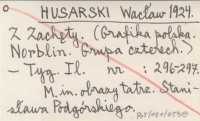 HUSARSKI Wacław 1924.
Z Zachęty. (Grafika polska.
Norblin. Grupa czterech.)
— Tyg. Il. nr : 296-297.
M. in. obrazy tatrz. Stani-
sława Podgórskiego.